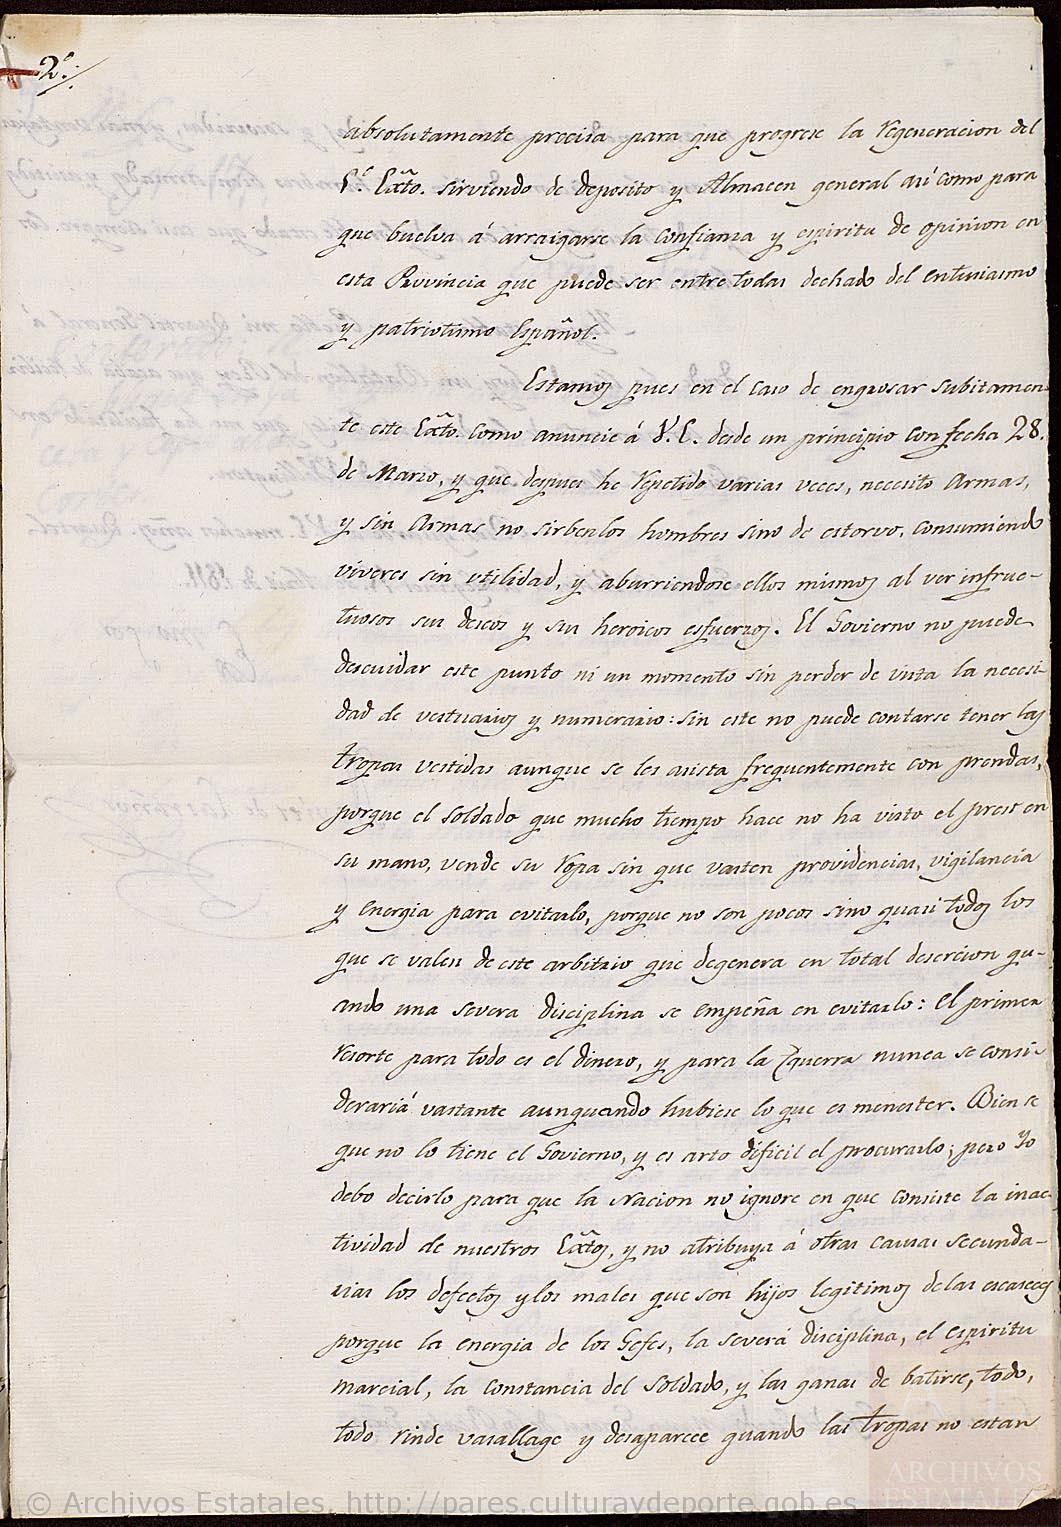 2.º
absolutamente precisa para que progrese la regeneracion del
5.º Exto. sirviendo de deposito y Almacen general asi como para
que buelva á arraigarse la confianza y espiritu de opinion en
esta Provincia que puede ser entre todas dechado del entusiasmo
y patriotismo Español.
Estamos pues en el caso de engrosar subitamen
te este Exto. como anuncie á V. E. desde un principio con fecha 28.
de Marzo, y que despues he repetido varias veces, necesito Armas,
y sin Armas no sirben los hombres sino de estorvo, consumiendo
viveres sin utilidad, y aburriendose ellos mismos al ver infruc-
tuosos sus deseos y sus heroicos esfuerzos. El Govierno no puede
descuidar este punto ni un momento sin perder de vista la necesi-
dad de vestuarios y numerario: sin este no puede contarse tener las
tropas vestidas aunque se les asista frequentemente con prendas,
porque el soldado que mucho tiempo hace no ha visto el prest en
su mano, vende su ropa sin que vasten providencias, vigilancia
y energia para evitarlo, porque no son pocos sino quasi todos los
que se valen de este arbitrio que degenera en total desercion qu-
ando una severa disciplina se empeña en evitarlo: el primer
resorte para todo es el dinero, y para la Guerra nunca se consi-
derariá vastante aunquando hubiese lo que es menester. Bien se
que no lo tiene el Govierno, y es arto dificil el procurarlo; pero Yo
debo decirlo para que la Nacion no ignore en que consiste la inac-
tividad de nuestros Extos, y no atribuya á otras causas secunda-
rias los defectos y los males que son hijos legitimos de las escaseces
porque la energia de los Gefes, la severa disciplina, el espiritu
marcial, la constancia del soldado, y las ganas de batirse, todo,
todo rinde vasallage y desaparece quando las tropas no estan
ARCHIVOS
ESTATALES
© Archivos Estatales, http://pares.culturaydeporte.gob.es